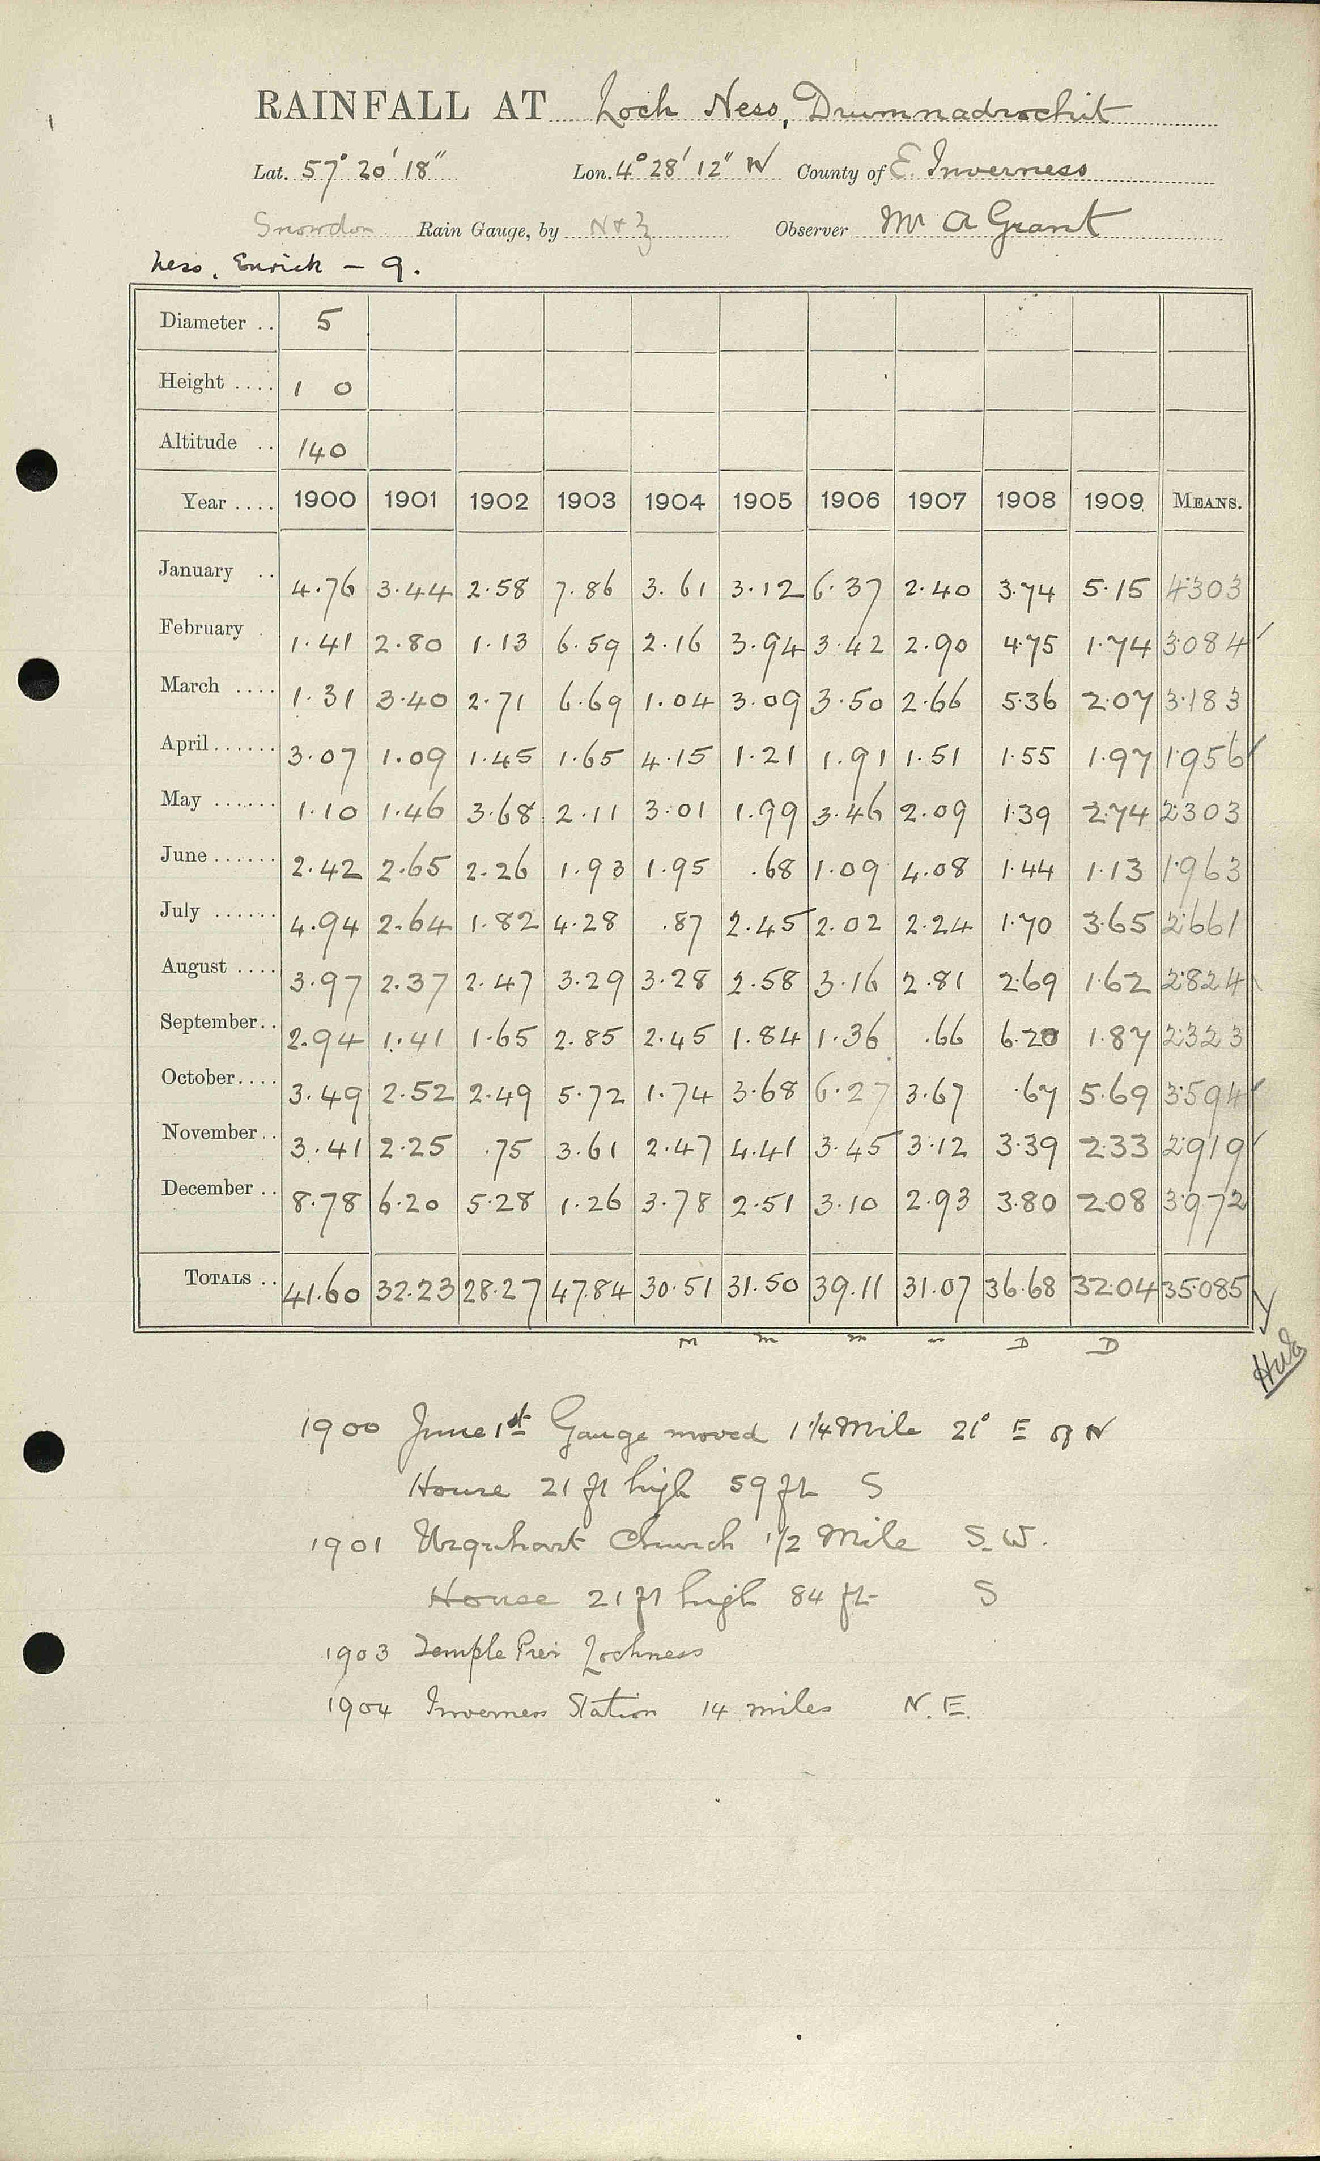 RAINFALL AT Loch Ness, Drumnadrochit
Lat. 57° 20' 18" Lon. 4° 28' 12" W County of E. Inverness
Snowdon Rain Gauge, by N & Z Observer Mr A Grant
Ness, Enrick – 9.
Diameter .. 5
Height .... 1 0
Altitude .. 140
Year .... 1900 1901 1902 1903 1904 1905 1906 1907 1908 1909 MEANS.
January .. 4.76 3.44 2.58 7.86 3.61 3.12 6.37 2.40 3.74 5.15 4.303
February . 1.41 2.80 1.13 6.59 2.16 3.94 3.42 2.90 4.75 1.74 3.084
March .... 1.31 3.40 2.71 6.69 1.04 3.09 3.50 2.66 5.36 2.07 3.183
April...... 3.07 1.09 1.45 1.65 4.15 1.21 1.91 1.51 1.55 1.97 1.956
May ...... 1.10 1.46 3.68 2.11 3.01 1.99 3.46 2.09 1.39 2.74 2.303
June...... 2.42 2.65 2.26 1.93 1.95 .68 1.09 4.08 1.44 1.13 1.963
July ...... 4.94 2.64 1.82 4.28 .87 2.45 2.02 2.24 1.70 3.65 2.661
August .... 3.97 2.37 2.47 3.29 3.28 2.58 3.16 2.81 2.69 1.62 2.824
September.. 2.94 1.41 1.65 2.85 2.45 1.84 1.36 .66 6.20 1.87 2.323
October.... 3.49 2.52 2.49 5.72 1.74 3.68 6.27 3.67 .67 5.69 3.594
November.. 3.41 2.25 .75 3.61 2.47 4.41 3.45 3.12 3.39 2.33 2.919
December .. 8.78 6.20 5.28 1.26 3.78 2.51 3.10 2.93 3.80 2.08 3.972
TOTALS .. 41.60 32.23 28.27 47.84 30.51 31.50 39.11 31.07 36.68 32.04 35.085
M m m D D
1900 June 1st Gauge moved 1 1/4 Mile 21° E of N
House 21 ft high 59 ft S
1901 Urquhart Church 1/2 Mile S.W.
House 21 ft high 84 ft S
1903 Temple Pier Lochness
1904 Inverness Station 14 miles N.E.